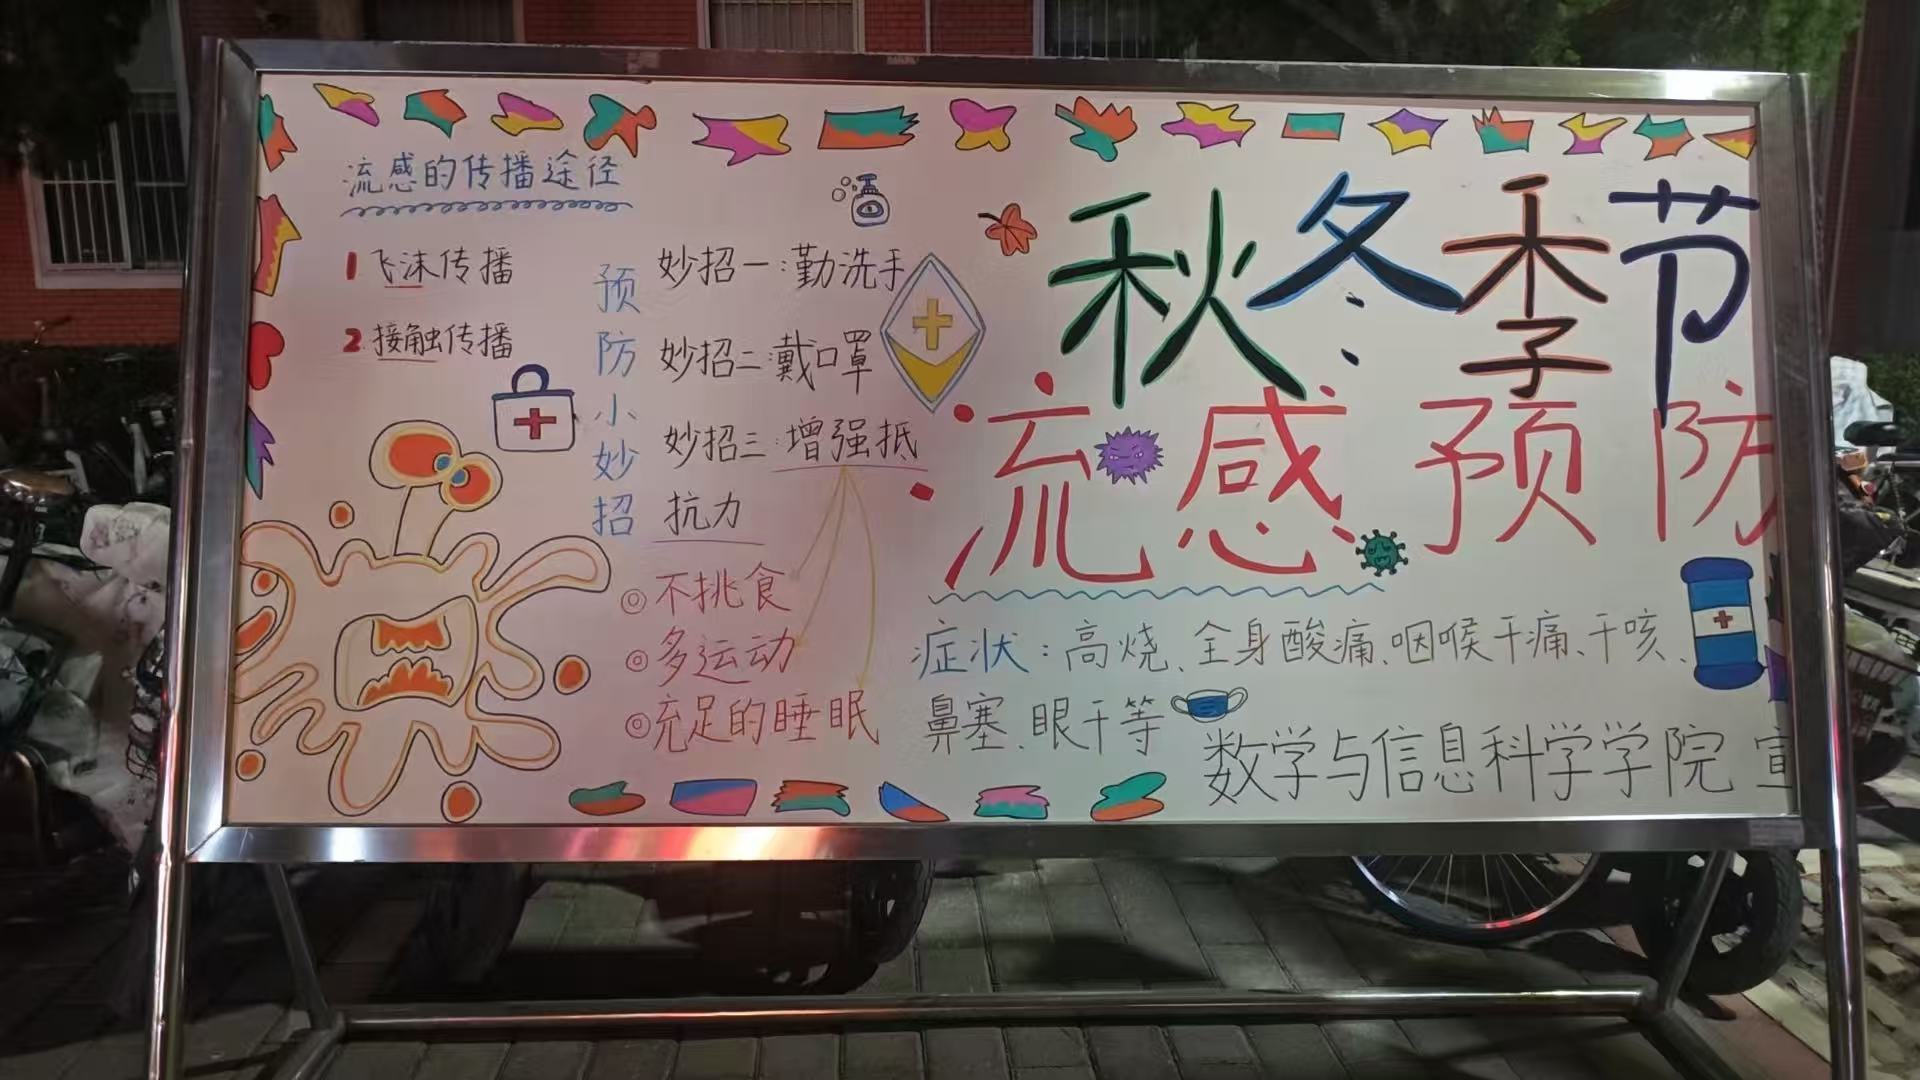 流感的传播途径
1 飞沫传播
2 接触传播
预防小妙招
妙招一:勤洗手
妙招二:戴口罩
妙招三:增强抵
抗力
◎不挑食
◎多运动
◎充足的睡眠
秋冬季节
流感预防
症状:高烧、全身酸痛、咽喉干痛、干咳、
鼻塞、眼干等
数学与信息科学学院 宣